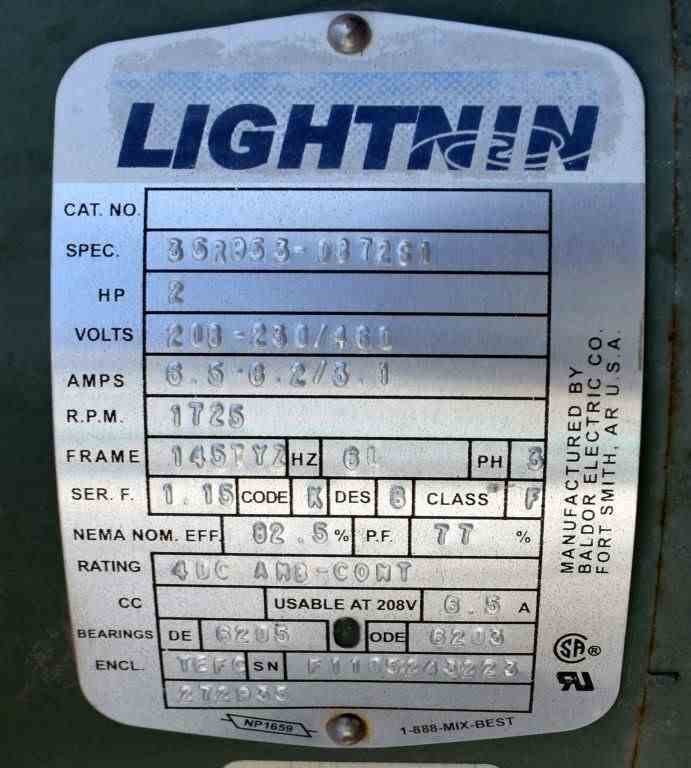 LIGHTNIN
CAT. NO.
SPEC.
HP 2
VOLTS 208-230/460
AMPS 6.5-6.2/3.1
R.P.M. 1725
FRAME HZ 60 PH 3
SER. F. 1.15 CODE K DES B CLASS F
NEMA NOM. EFF. 82.5 % P.F. 77 %
RATING 40C AMB-CONT
CC USABLE AT 208V 6.5 A
BEARINGS DE 6205 ODE 6203
ENCL. TEFC SN
MANUFACTURED BY
BALDOR ELECTRIC CO.
FORT SMITH, AR U.S.A.
SA ®
NP1659
1-888-MIX-BEST